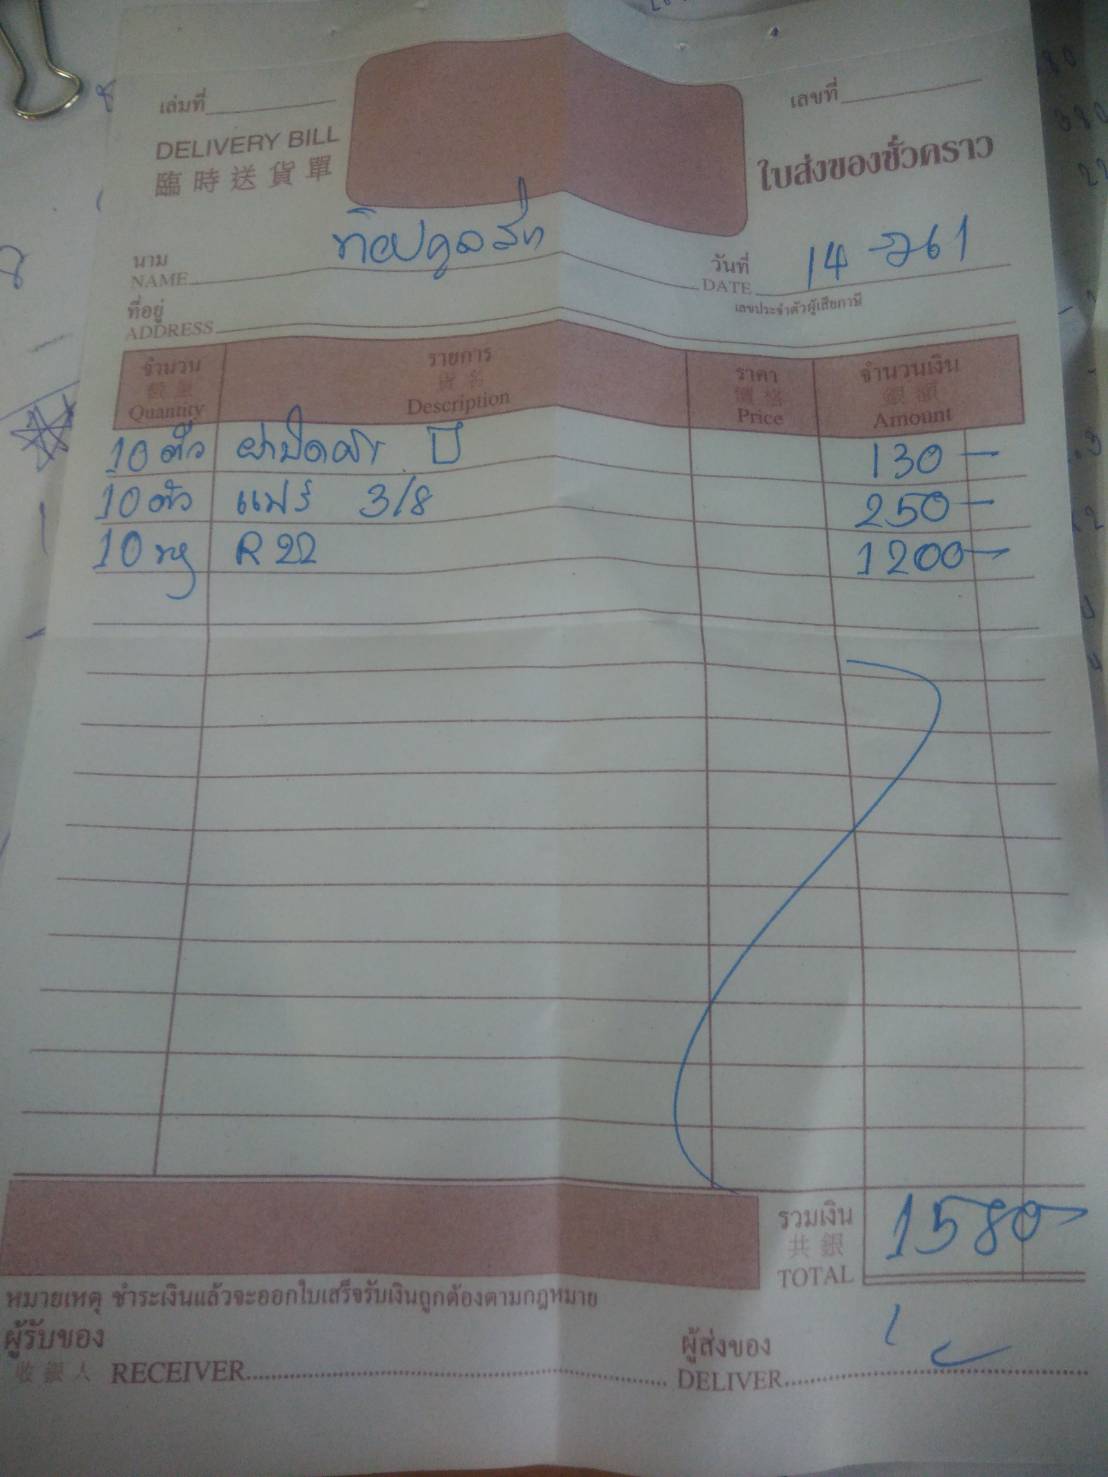 เล่มที่
เลขที่
DELIVERY BILL
臨時送貨單
ใบส่งของชั่วคราว
นาม
NAME
วันที่
DATE
14
61
ที่อยู่
ADDRESS
เลขประจำตัวผู้เสียภาษี
จำนวน
數量
Quantity
รายการ
貨名
Description
ราคา
價格
Price
จำนวนเงิน
銀額
Amount
10 ตัว 130 -
10 ตัว แฟร์ 3/8 250 -
10 R22 1200 -
รวมเงิน
共銀
TOTAL
1580 -
หมายเหตุ ชำระเงินแล้วจะออกใบเสร็จรับเงินถูกต้องตามกฎหมาย
ผู้รับของ
收銀人 RECEIVER
ผู้ส่งของ
DELIVER